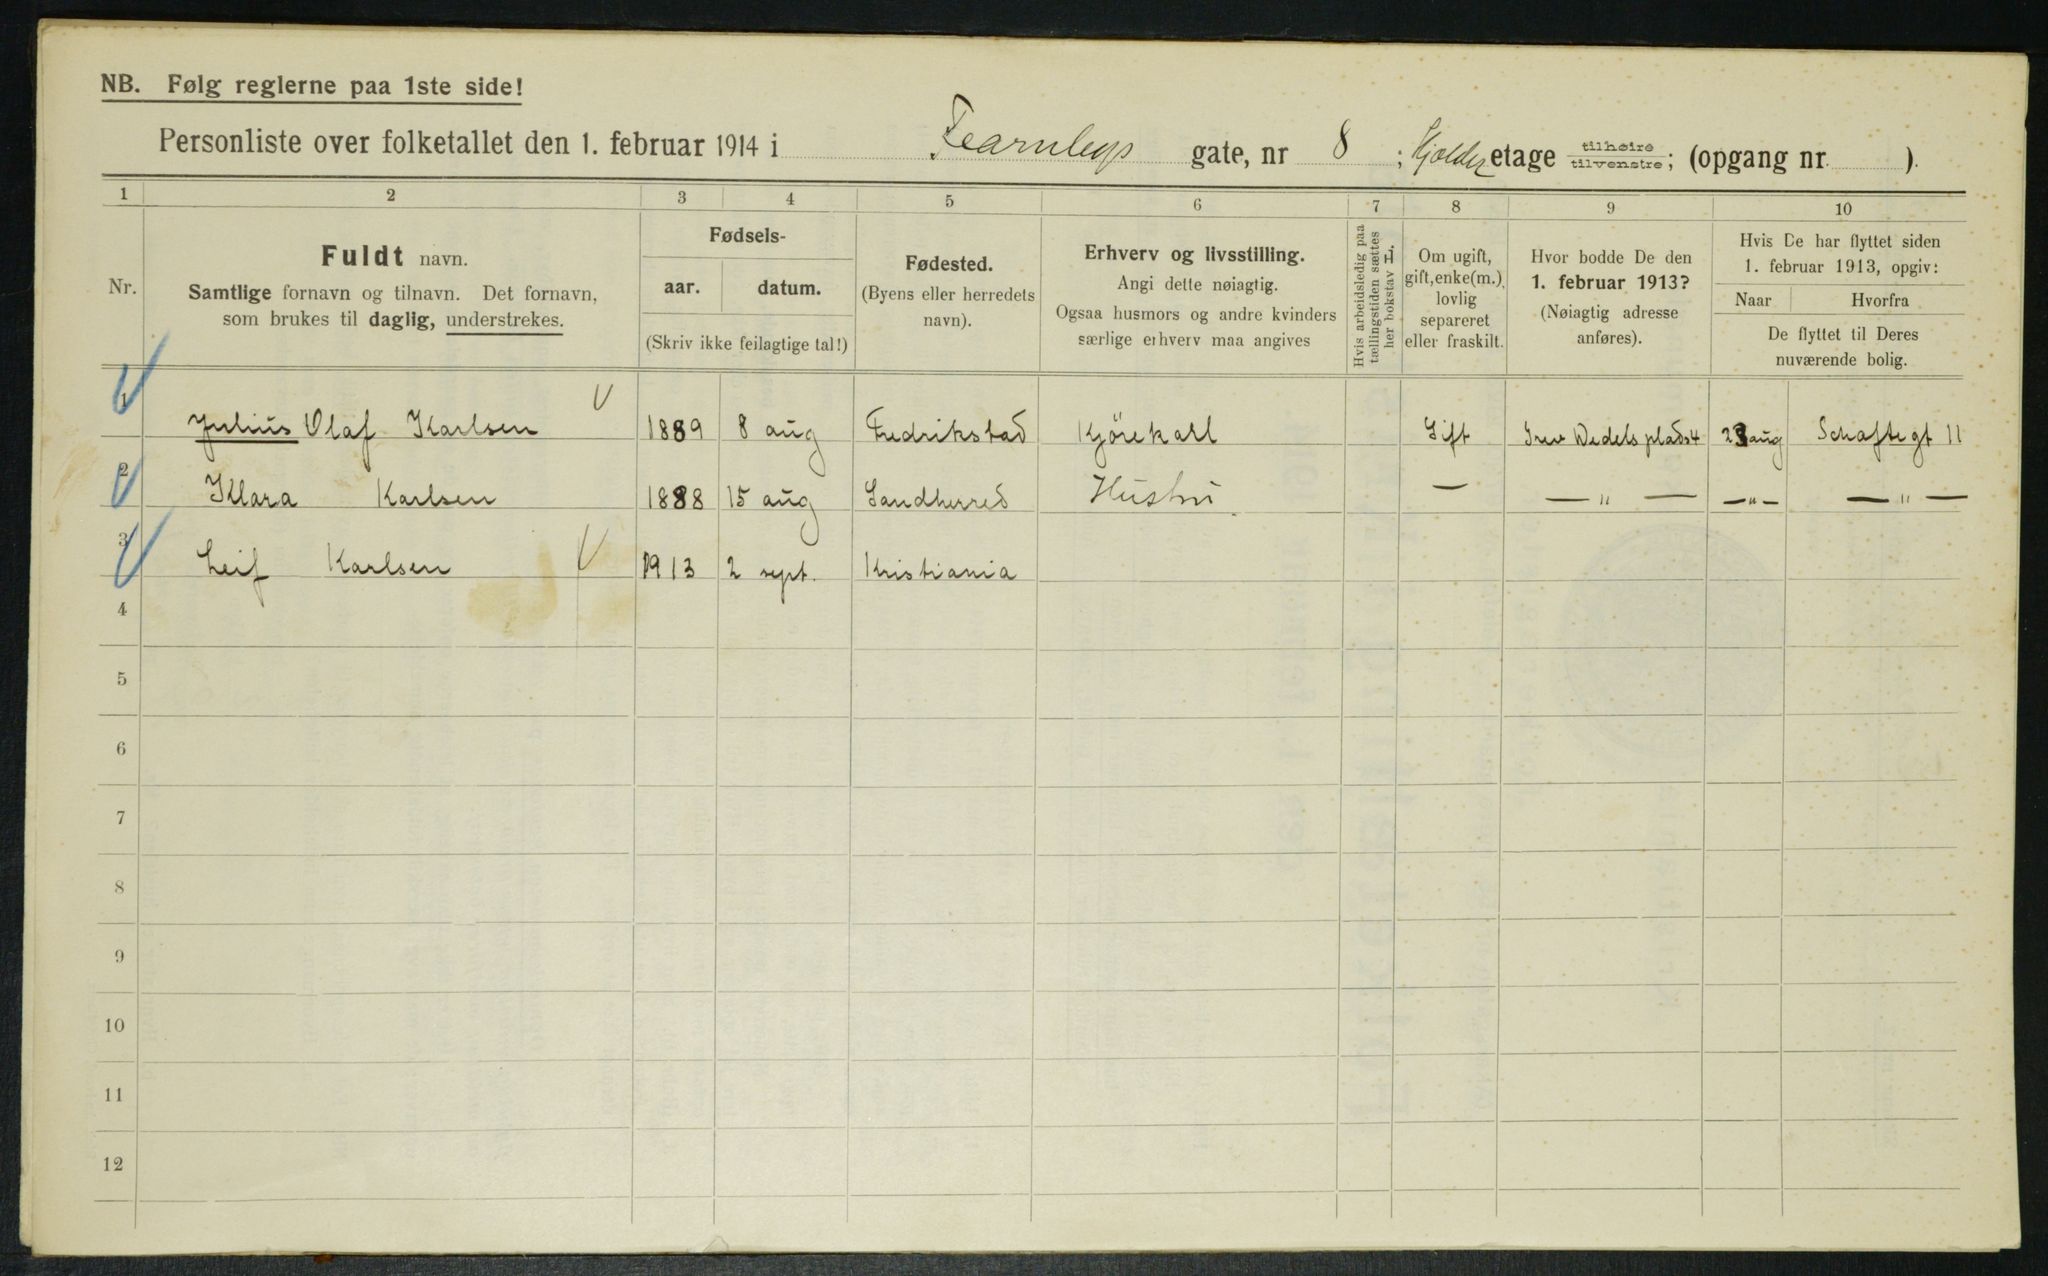 NB. Følg reglerne paa 1ste side!
Personliste over folketallet den 1. februar 1914 i Fearnleys gate, nr 8; Kjelder etage tilhøire tilvenstre; (opgang nr. ).
1 2 3 4 5 6 7 8 9 10
Nr.
Fuldt navn.
Samtlige fornavn og tilnavn. Det fornavn,
som brukes til daglig, understrekes.
Fødsels-
aar. datum.
(Skriv ikke feilagtige tal!)
Fødested.
(Byens eller herredets
navn).
Erhverv og livsstilling.
Angi dette nøiagtig.
Ogsaa husmors og andre kvinders
særlige erhverv maa angives
Hvis arbeidsledig paa
tællingstiden sættes
her bokstav L.
Om ugift,
gift, enke(m.),
lovlig
separeret
eller fraskilt.
Hvor bodde De den
1. februar 1913?
(Nøiagtig adresse
anføres).
Hvis De har flyttet siden
1. februar 1913, opgiv:
Naar Hvorfra
De flyttet til Deres
nuværende bolig.
1 Julius Olaf Karlsen 1889 8 aug Fredrikstad Kjörekarl Gift Wedels plads 4 23 aug Schaftegt 11
2 Klara Karlsen 1888 15 aug Sandherred Hustru — — " — — " — — " —
3 Leif Karlsen 1913 2 sept. Kristiania
4
5
6
7
8
9
10
11
12